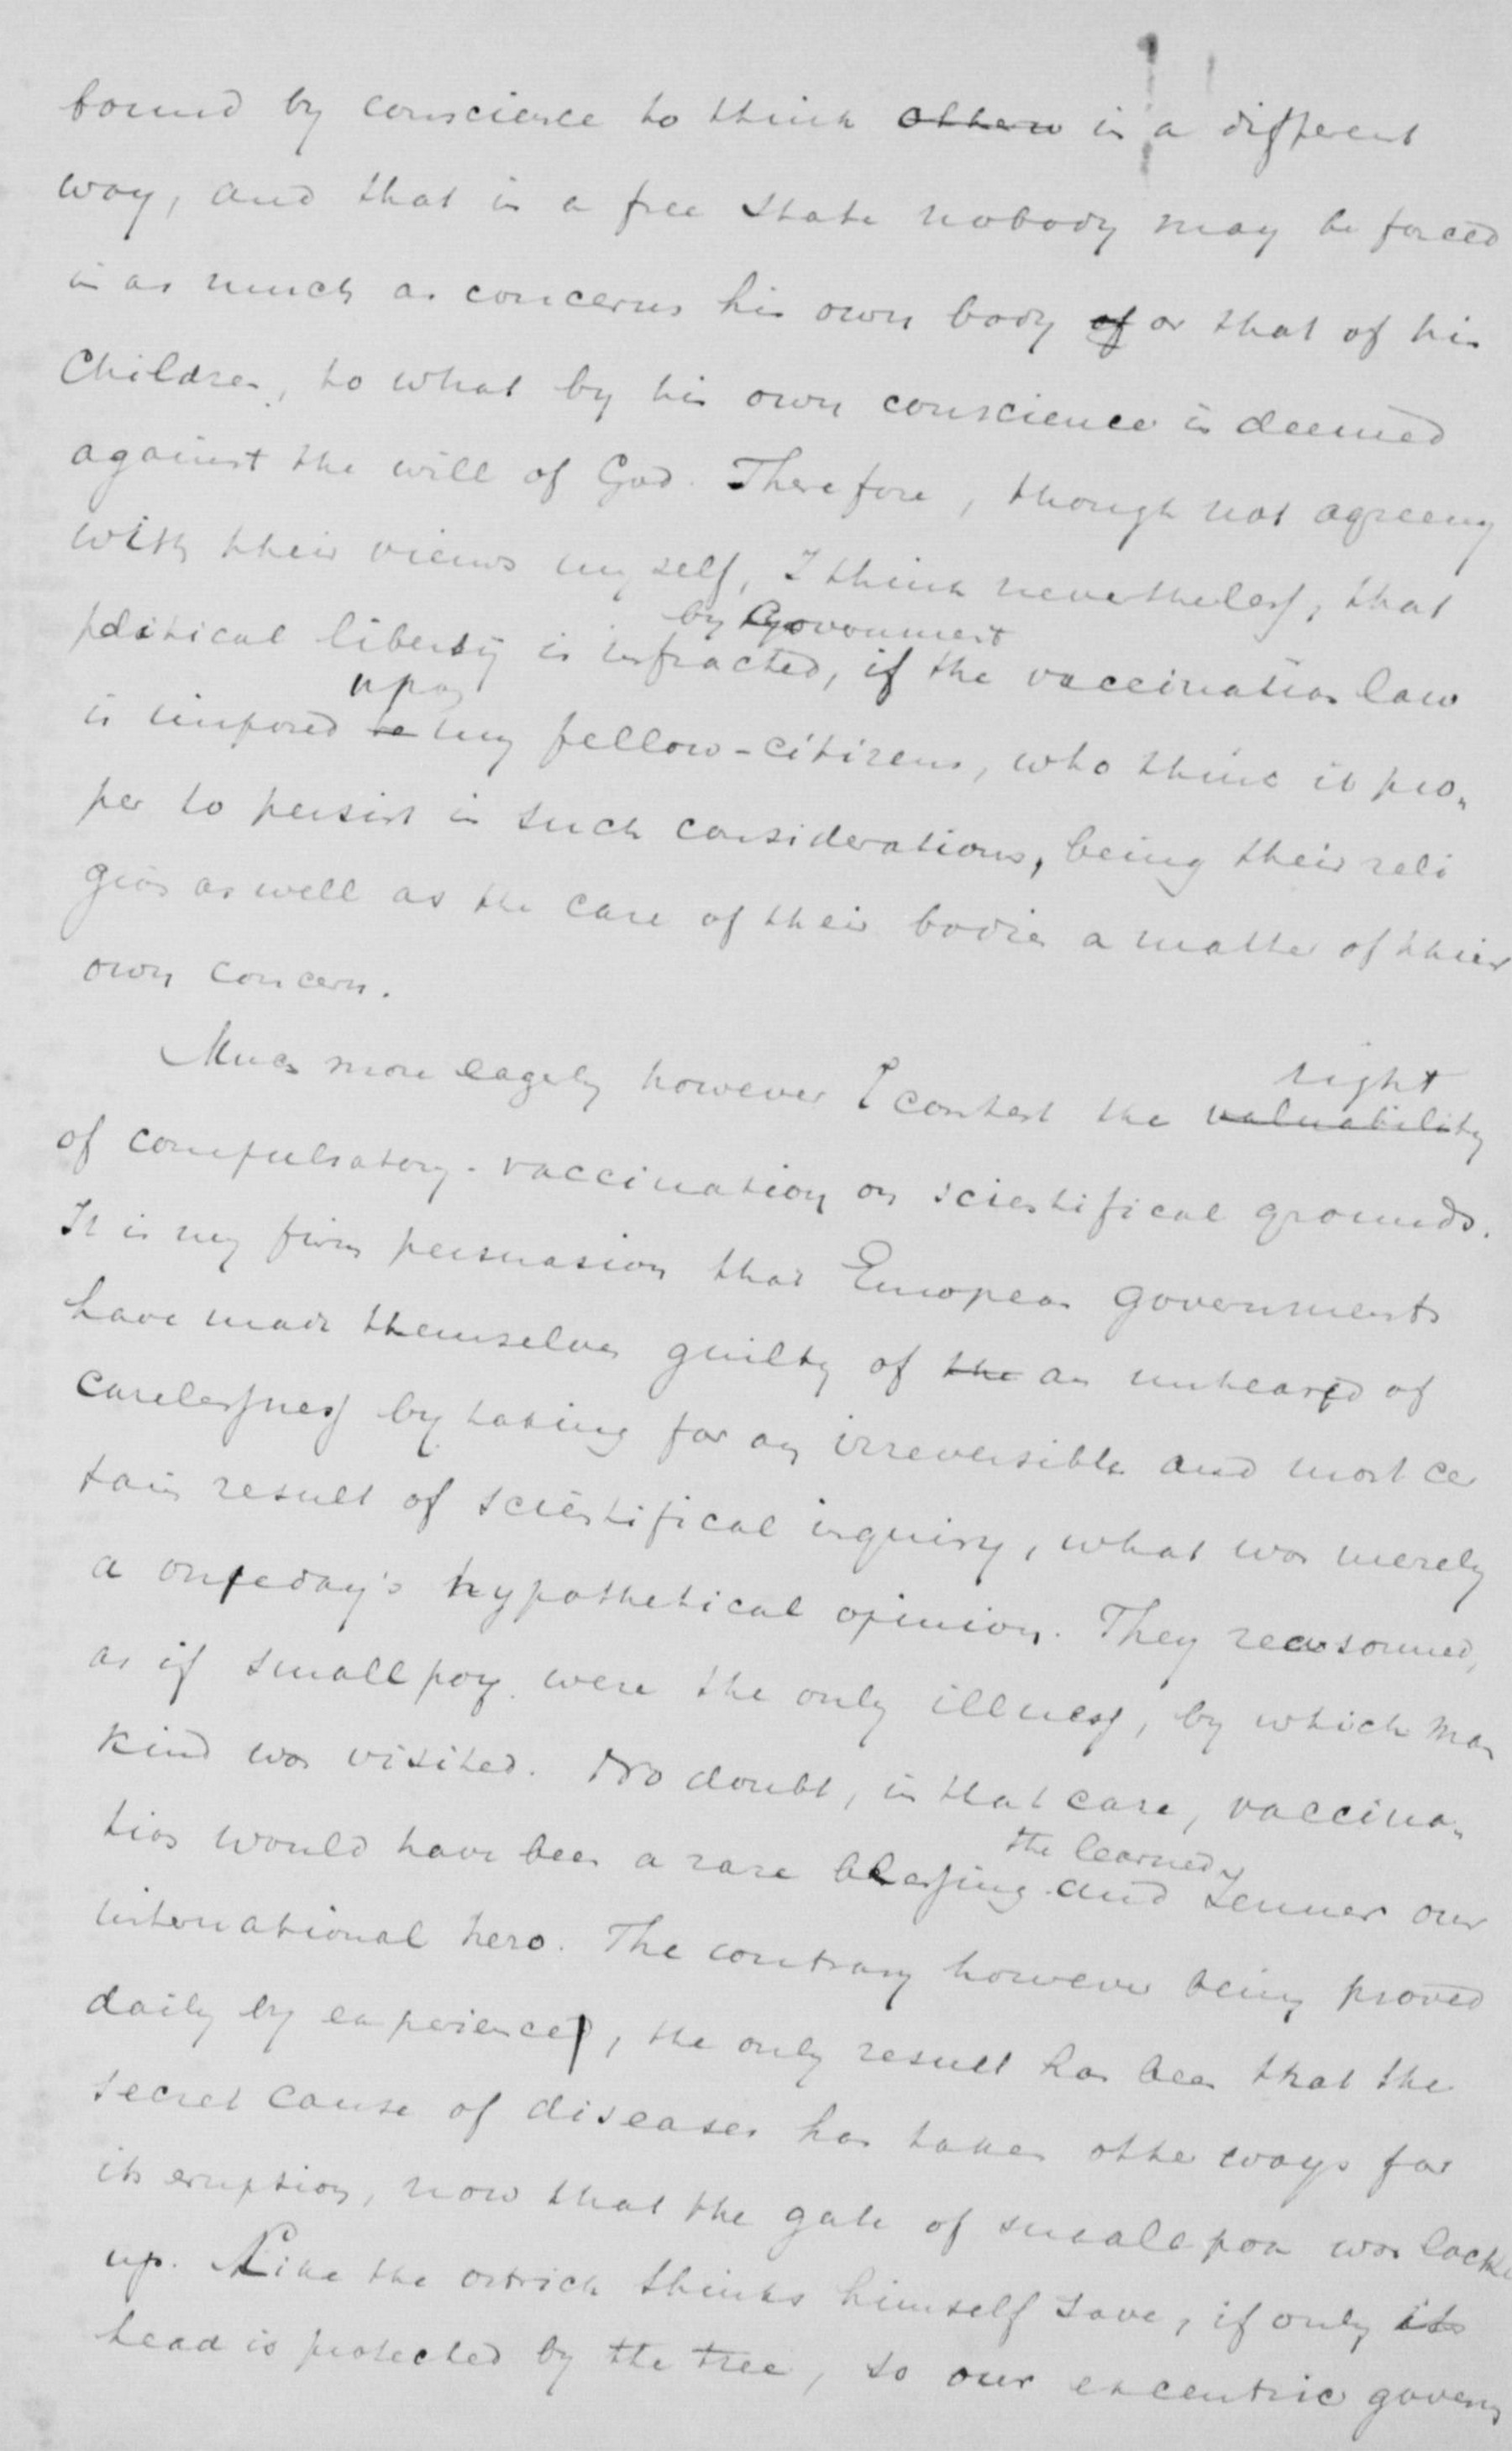 bound by conscience to think othew in a different
way, and that in a free state nobody may be forced
in as much as concerns his own body of or that of his
Children, to what by his own conscience is deemed
against the will of God. Therefore, though not agreeing
with their views my self, I think nevertheless, that
by Government
political liberty is infracted, if the vaccination law
upon
is imposed to my fellow-citizens, who think it pro„
per to persist in such considerations, being their reli
gion as well as the care of their bodies a matter of their
own concern.
Much more eagerly however I contest the valuability
right
of compulsatory-vaccination on scientifical grounds.
It is my firm persuasion that European governments
have made themselves guilty of the an unheard of
carelessness by taking for an irreversible and most cer
tain result of scientifical inquiry, what was merely
a oneday's hypothetical opinion. They reasonned,
as if smallpox were the only illness, by which man
kind was visited. No doubt, in that case, vaccina„
tion would have been a rare blessing and Jenner our
the learned
international hero. The contrary however being proved
daily by experience, the only result has been that the
secret cause of diseases has taken other ways for
its eruption, now that the gate of smallpox was locke
up. Like the ostrich thinks himself save, if only its
head is protected by the tree, so our excentric govern